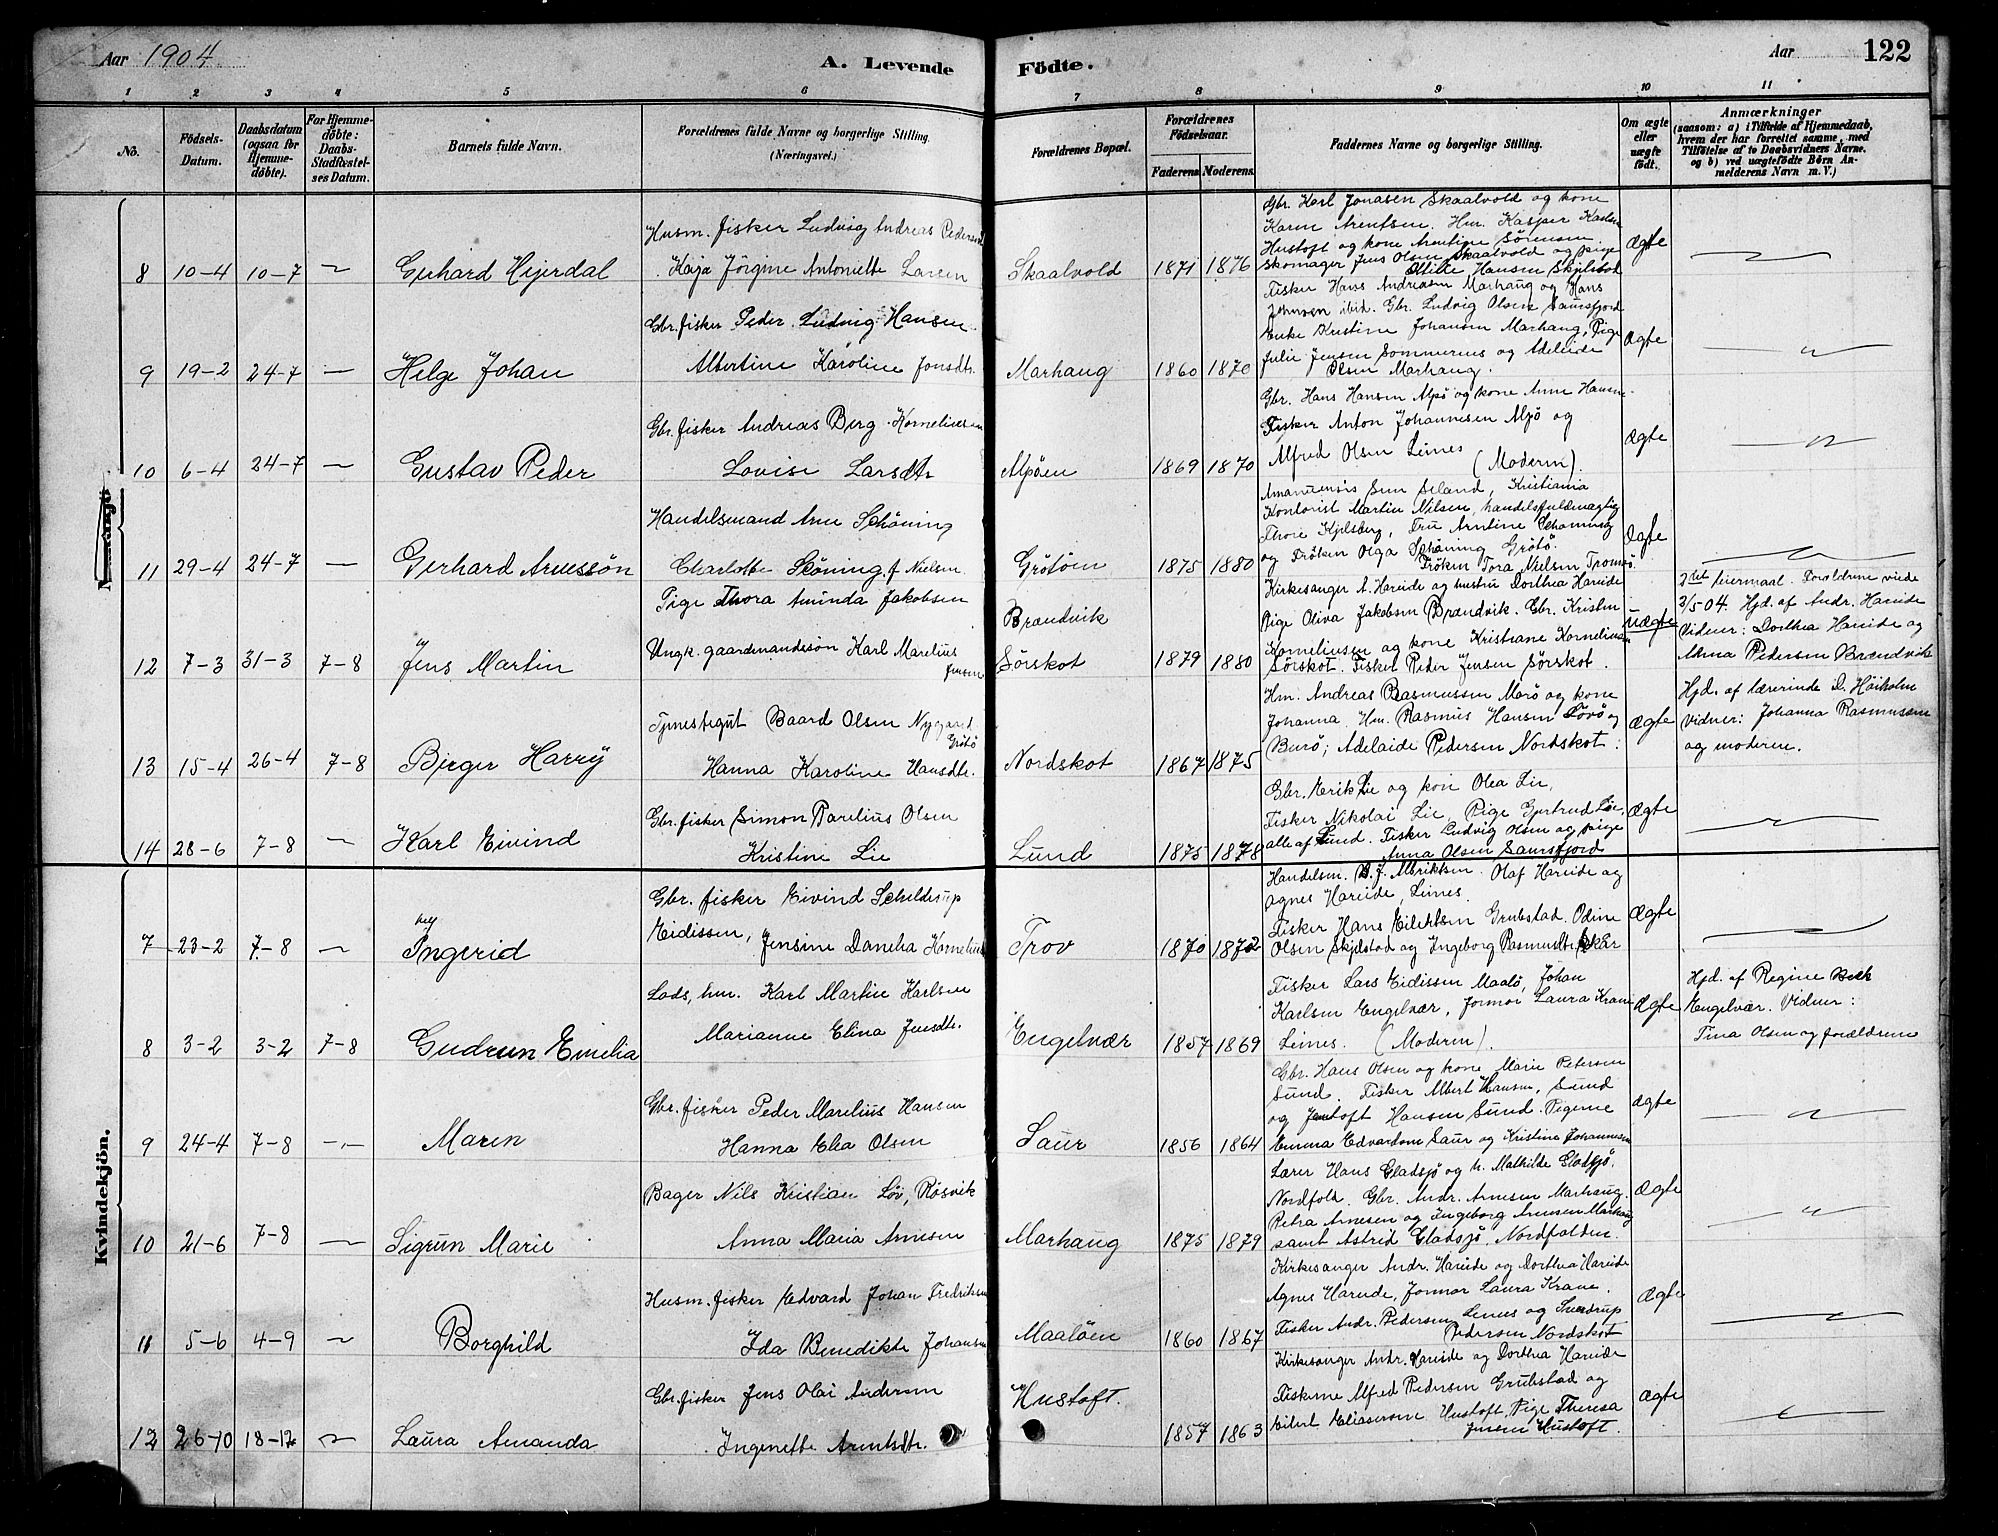 Aar 1904. A. Levende Födte. Aar 122
1 2 3 4 5 6 7 8 9 10 11
No. Födsels-Datum. Daabsdatum (ogsaa for Hjemme-döbte). For Hjemme-döbte: Daabs-Stadfæstel-ses Datum. Barnets fulde Navn. Forældrenes fulde Navne og borgerlige Stilling. (Næringsvei.) Forældrenes Bopæl. Forældrenes Födselsaar. Faderens Moderens. Faddernes Navne og borgerlige Stilling. Om ægte eller uægte födt. Anmærkninger (saasom: a) i Tilfælde af Hjemmedaab, hvem der har forrettet samme, med Tilföielse af to Daabsvidners Navne. og b) ved uægtefödte Börn An-melderens Navn m. V.)
Gbr. Karl Jonasen Skaalvold og kone
Husm. fisker Ludvig Andreas Pedersen
Karen Arentsen. Hm. Kasper Karlsen
Hustoft og kone Arntine Sörensen
8 10-4 10-7 Gerhard Hejerdal Kaja Jörgine Antonette Larsen Skaalvold 1871 1876 Skomager Jens Olsen Skaalvold og pige ægte
Otilie Hansen Skjelstad
Gbr. fisker Peder Ludvig Hansen
Fisker Hans Andreasen Marhaug og Hans
Johnsen ibid. Gbr. Ludvig Olsen Saursfjord
Enke Kristine Johansen Marhaug, Pige
9 19-2 24-7 Helge Johan Albertine Karoline Jonsdtr. Marhaug 1860 1870 Julie Jensen Sommernes og Adelaide ægte
Olsen Marhaug.
Gbr. fisker Andreas Berg Korneliusen
Gbr. Hans Hansen Alpö og kone Anne Hansen
Fisker Anton Johannesen Alpö og
10 6-4 24-7 Gustav Peder Lovise Larsdtr Alpöen 1869 1870 Alfred Olsen Leines (Moderen). ægte
Handelsmand Arne Schöning
Amanuensis Seland, Kristiania
Kontorist Martin Nilsen, handelsfuldmægtig
Thore Kjelsberg, Fru Arntine Schöning
11 29-4 24-7 Gerhard Arnessön Charlotte Sköning f. Nielsen Grötöen 1875 1880 og Fröken Olga Schöning Grötö. ægte
Fröken Tora Nielsen Tromsö.
Pige Thora Aminda Jakobsen Brændvik
Kirkesanger A. Hareide og hustru Dorthea Hareide
2det leiermaal. Forældrene viede
Pige Oliva Jakobsen Brændvik. Gbr. Kristen
3/5-04. Hjd. af Andr. Hareide
Ungk. gaardmandssön Karl Marelius Jensen
Korneliusen og kone Kristiane Kornelius
Vidner: Dorthea Hareide og
12 7-3 31-3 7-8 Jens Martin Sörskot 1879 1880 Sörskot. Fisker Peder Jensen Sörskot. uægte Alma Pedersen Brændvik
Tjenestegut Baard Olsen Nygaard, Grötö
Hm. Andreas Rasmussen Marö og kone
Hjd. af lærerinde D. Höiholm
Johanna. Hm. Rasmus Hansen og
Vidner: Johanna Rasmussen
13 15-4 26-4 7-8 Birger Harry Hanna Karoline Hansdtr. Nordskot 1867 1875 Burö; Adelaide Pedersen Nordskot. ægte og moderen.
Gbr. fisker Simon Parelius Olsen
Gbr. Erik Lie og kone Olea Lie,
Fisker Nikolai Lie Pige Gjertrud Lie,
14 28-6 7-8 Karl Eivind Kristine Lie Lund 1875 1878 alle af Lund. Fisker Ludvig Olsen og pige ægte
Anna Olsen Saursfjord
Kvindekjön.
Gbr. fisker Eivind Schilderup
Handelsm. Albriktsen. Olaf Hareide og
Agnes Hareide, Leines.
Eidissen, Jensine Danelia Kornelius
Fisker Hans Eilertsen Grubstad. Odine
7 23-2 7-8 Ingerid Trov 1870 1872 Olsen Skjelstad og Ingeborg Rasmusdtr Skar ægte
Lods, hm. Karl Martin Karlsen
Fisker Lars Eidissen Maalö, Johan
Hjd. af Regine Beck
Karlsen Engelvær, Jormor Laura Krane
Engelvær. Vidner:
8 3-2 3-2 7-8 Gudrun Emelia Marianne Elina Jensdtr. Engelvær 1857 1869 Leines. (Moderen). ægte Tina Olsen og forældrene
Gbr. fisker Peder Marelius Hansen
Gbr. Hans Olsen og kone Marie Petersen
Sund. Fisker Albert Hansen, Sund
og Jentoft Hansen Sund. Pigerne
9 24-4 7-8 Maren Hanna Elea Olsen Saur 1856 1864 Emma Edvardsen Saur og Kristine Johannesen ægte
Bager Nils Kristian Löv, Rösvik
Lærer Hans Gladsjö og h. Mathilde Gladsjö,
Nordfold. Gbr. Andr. Arnesen Marhaug.
Petra Arnesen og Ingeborg Arnesen Marhaug
10 21-6 7-8 Sigrun Marie Anna Maria Arnesen Marhaug 1875 1879 samt Astrid Gladsjö, Nordfolden. ægte
Husm. fisker Edvard Johan Fredriksen
Kirkesanger Andr. Hareide og Dorthea Hareide
Agnes Hareide, Jormor Laura Krane,
11 5-6 4-9 Borghild Ida Benedikte Johansen Maalöen 1860 1867 Fisker Andr. Pedersen Leines og Sverdrup ægte
Pedersen Nordskot
Gbr. fisker Jens Olai Andersen
Kirkesanger Andr. Hareide og Dorthea Hareide
Fiskerne Alfred Pedersen Grubstad og
12 26-10 18-12 Laura Amanda Ingenette Arntsdtr. Hustoft. 1857 1863 Eilert Eliasersen Hustoft, Pige Theresa ægte
Jensen Hustoft.